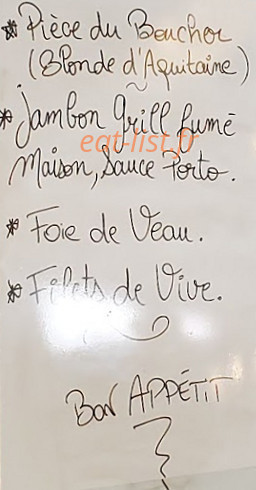 * Pièce du Boucher
(Blonde d'Aquitaine)
* Jambon grill fumé
eat-list.fr
Maison, Sauce Porto.
* Foie de Veau.
* Filets de Vive.
BON APPÉTIT